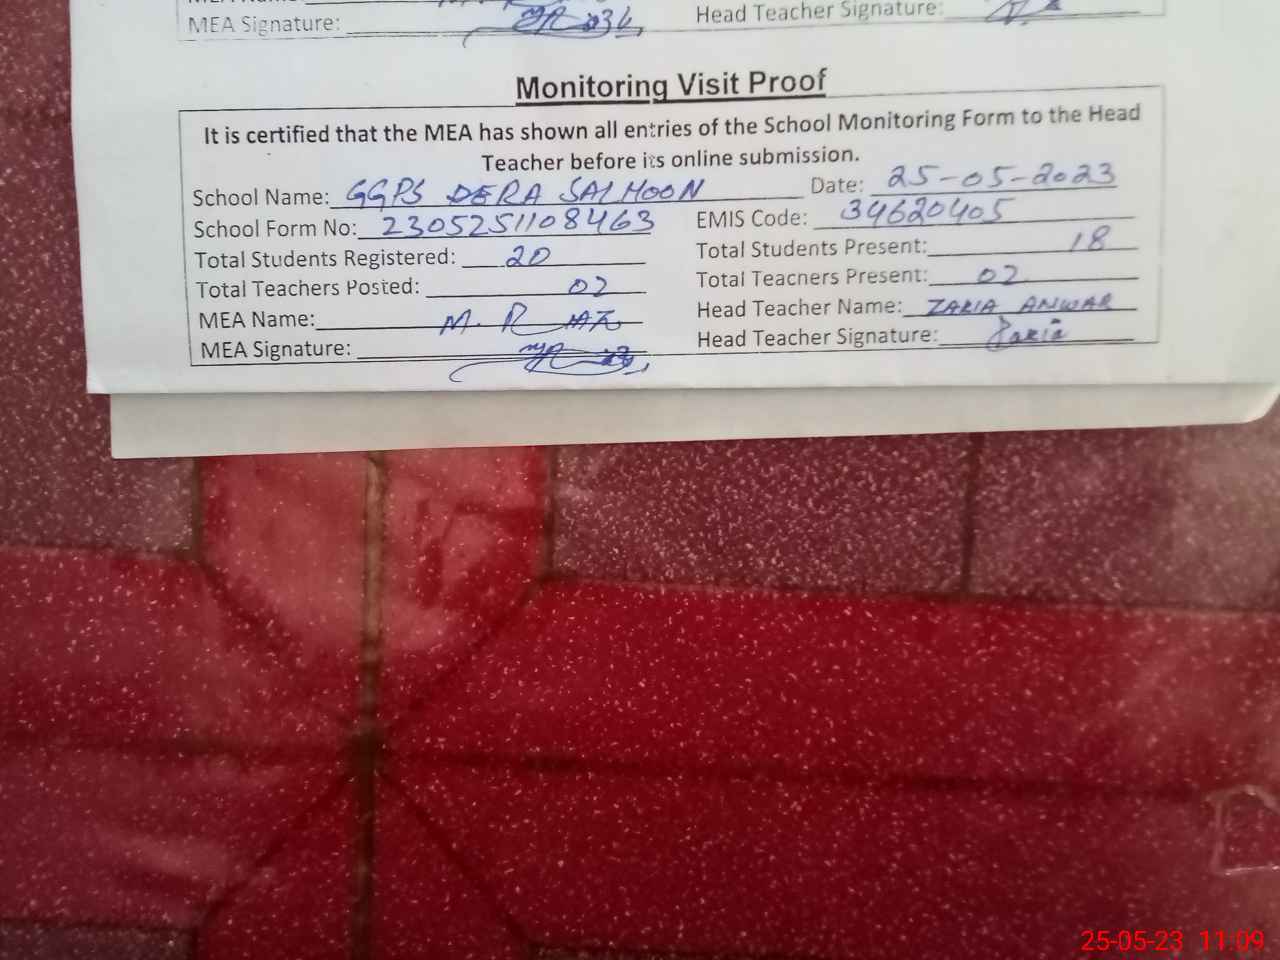 MEA Signature: Head Teacher Signature:
Monitoring Visit Proof
It is certified that the MEA has shown all entries of the School Monitoring Form to the Head
Teacher before its online submission.
School Name: GGPS DERA SALMOON Date: 25-05-2023
School Form No: 2305251108463 EMIS Code: 34620405
Total Students Registered: 20 Total Students Present: 18
Total Teachers Posted: 02 Total Teachers Present: 02
MEA Name: M. R Head Teacher Name: ZARIA ANWAR
MEA Signature: Head Teacher Signature: Zaria
25-05-23 11:09